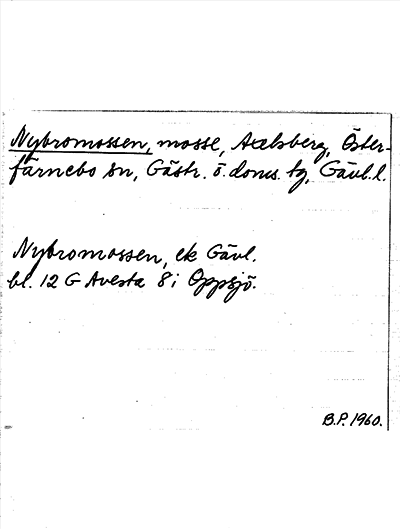 Nybromossen, mosse, Axelsberg, Öster-
färnebo sn, Gästr. ö. doms. tg, Gävl. l.
Nybromossen, ek Gävl.
bl. 12 G Avesta 8 i Oppsjö.
B.P. 1960.